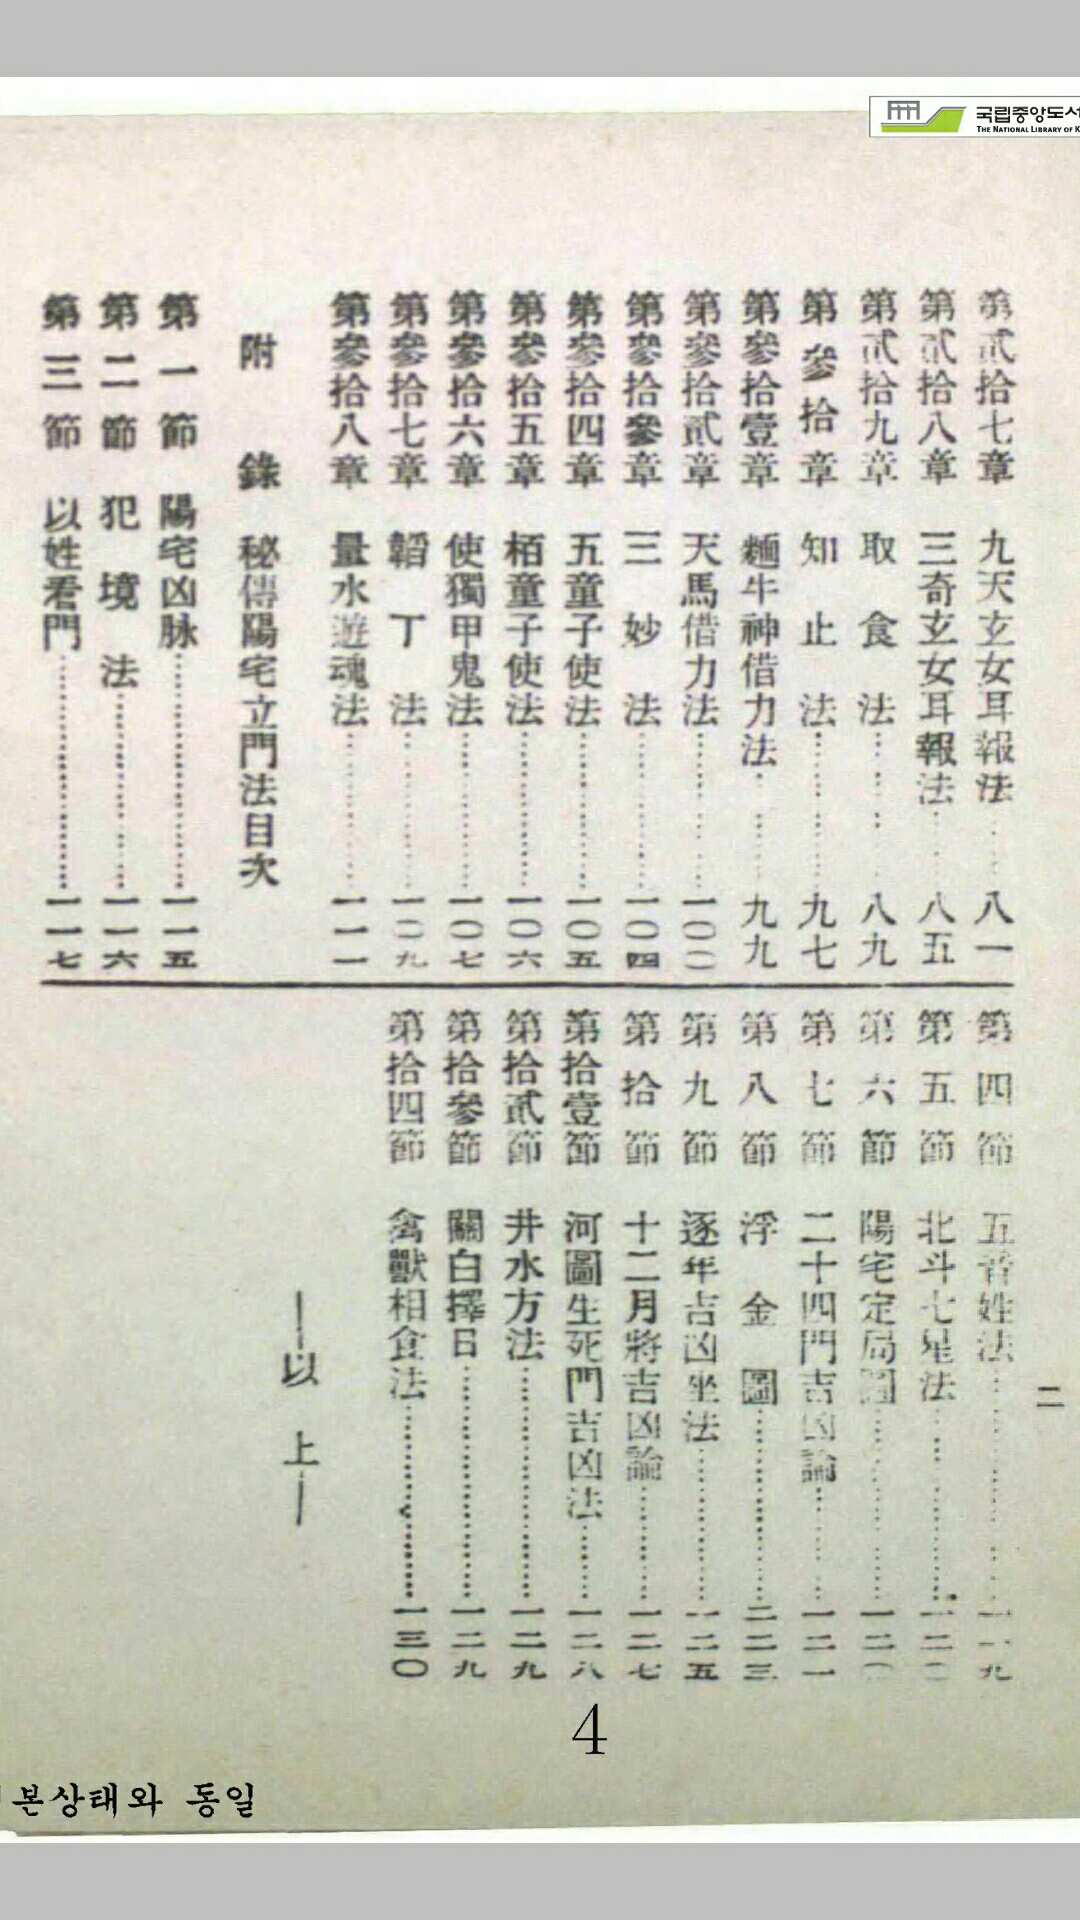 국립중앙도서
THE NATIONAL LIBRARY OF K
第貳拾七章 九天玄女耳報法 八一
第貳拾八章 三奇玄女耳報法 八五
第貳拾九章 取食法 八九
第參拾章 知止法 九七
第參拾壹章 麵牛神借力法 九九
第參拾貳章 天馬借力法 一〇〇
第參拾參章 三妙法 一〇四
第參拾四章 五童子使法 一〇五
第參拾五章 栢童子使法 一〇六
第參拾六章 使獨甲鬼法 一〇七
第參拾七章 韜丁法 一〇九
第參拾八章 量水遊魂法 一一一
附錄 秘傳陽宅立門法目次
第一節 陽宅凶脉 一一五
第二節 犯境法 一一六
第三節 以姓看門 一一七
第四節 五音姓法 一一九
第五節 北斗七星法 一二〇
第六節 陽宅定局圖 一二〇
第七節 二十四門吉凶論 一二一
第八節 浮金圖 二二三
第九節 逐年吉凶坐法 一二五
第拾節 十二月將吉凶論 一二七
第拾壹節 河圖生死門吉凶法 一二八
第拾貳節 井水方法 一二九
第拾參節 關白擇日 一二九
第拾四節 禽獸相食法 一三〇
—以上—
二
4
본상태와 동일